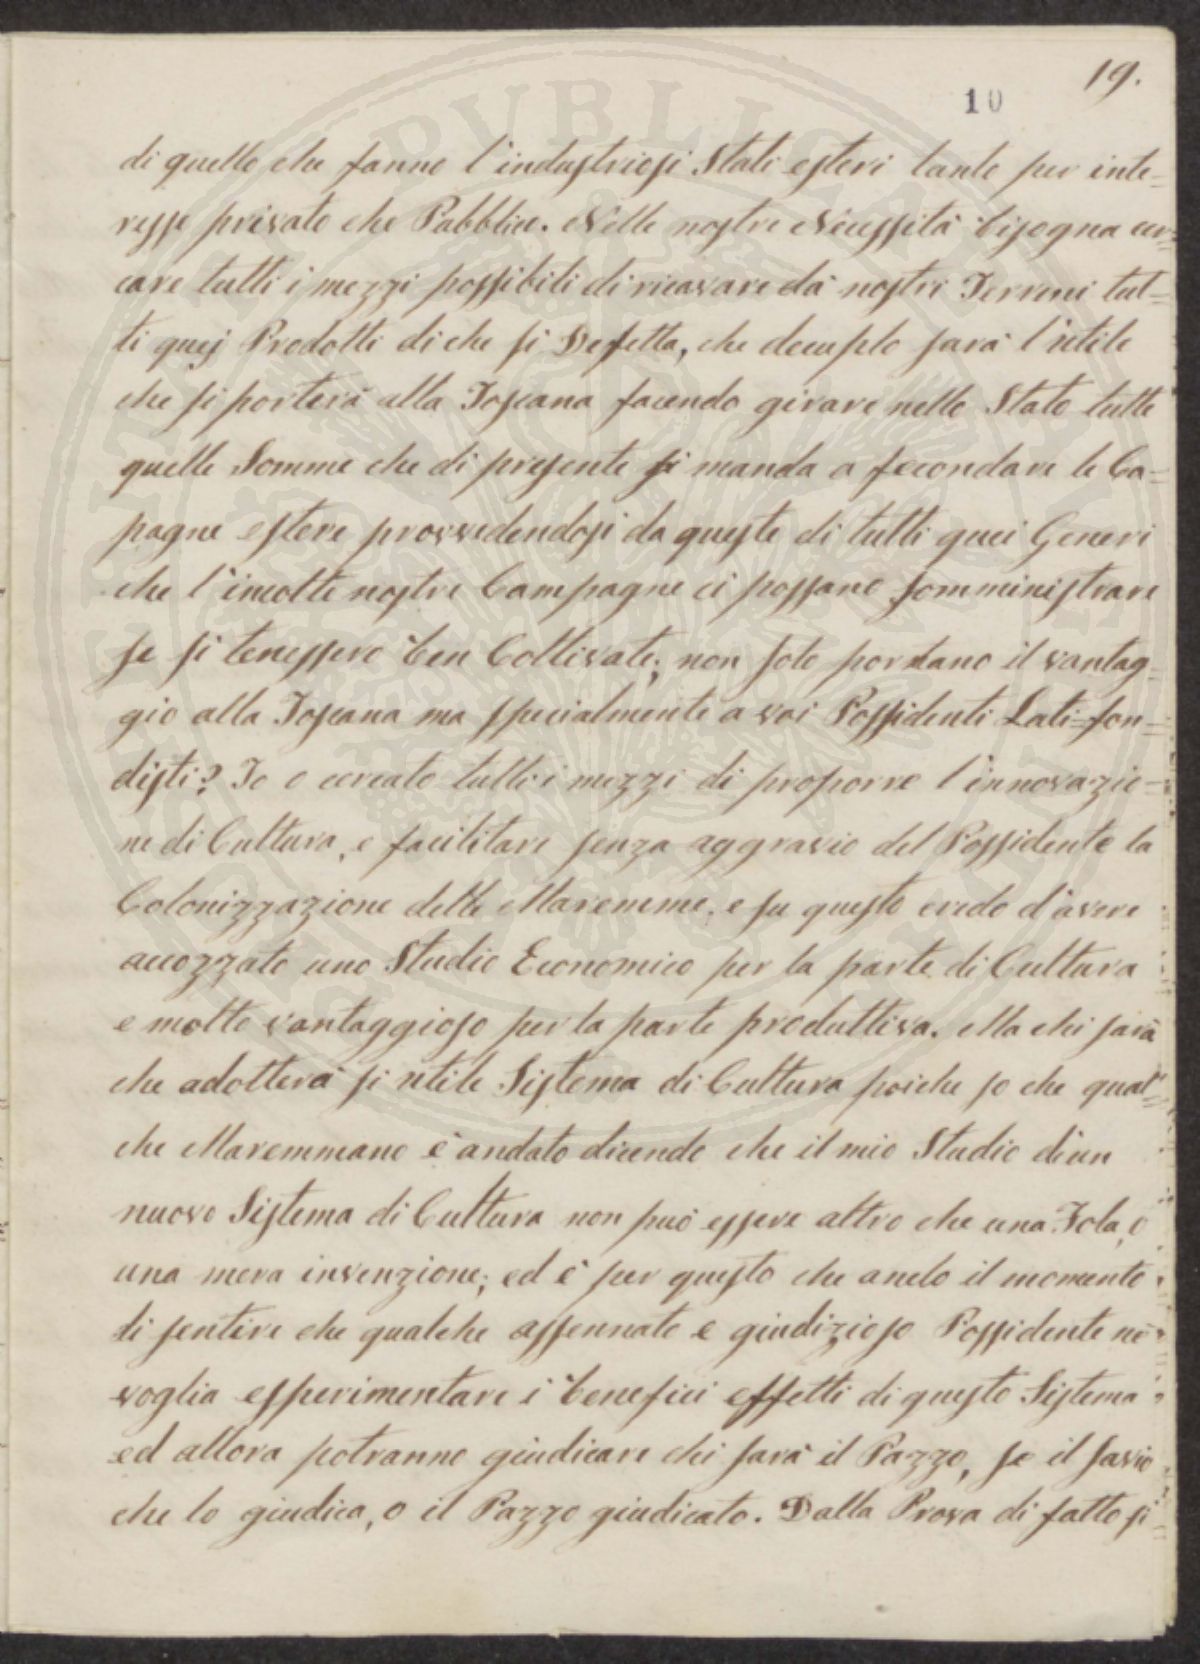 19.
10
di quello che fanno l'industriosi Stati esteri tanto per inte=
resse privato che Pubblico. Nelle nostre Necessità bisogna cer=
care tutti i mezzi possibili di ricavare dà nostri Terreni tut=
ti quei Prodotti di che si Difetta, che decuplo sarà l'utile
che si porterà alla Toscana facendo girare nello Stato tutte
quelle Somme che di presente si manda a fecondare le Ca=
pagne estere provvedendosi da queste di tutti quei Generi
che l'incolte nostre Campagne ci possano somministrare
se si tenessero ben Coltivate; non solo portano il vantag=
gio alla Toscana ma specialmente a voi Possidenti Lati=fon=
disti? Io o cercato tutti i mezzi di proporre l'innovazio=
ne di Cultura, e facilitare senza aggravio del Possidente la
Colonizzazione delle Maremme, e su questo credo d'avere
accozzato uno Studio Economico per la parte di Cultura
e molto vantaggioso per la parte produttiva. Ma chi sarà
che adotterà si utile Sistema di Cultura poiche so che qual=
che Maremmano è andato dicendo che il mio Studio di un
nuovo Sistema di Cultura non può essere altro che una Fola, o
una mera invenzione; ed è per questo che anelo il momento
di sentire che qualche assennato e giudizioso Possidente ne
voglia esperimentare i benefici effetti di questo Sistema
ed allora potranno giudicare chi sarà il Pazzo, se il savio
che lo giudica, o il Pazzo giudicato. Dalla Prova di fatto si=
PUBLIC